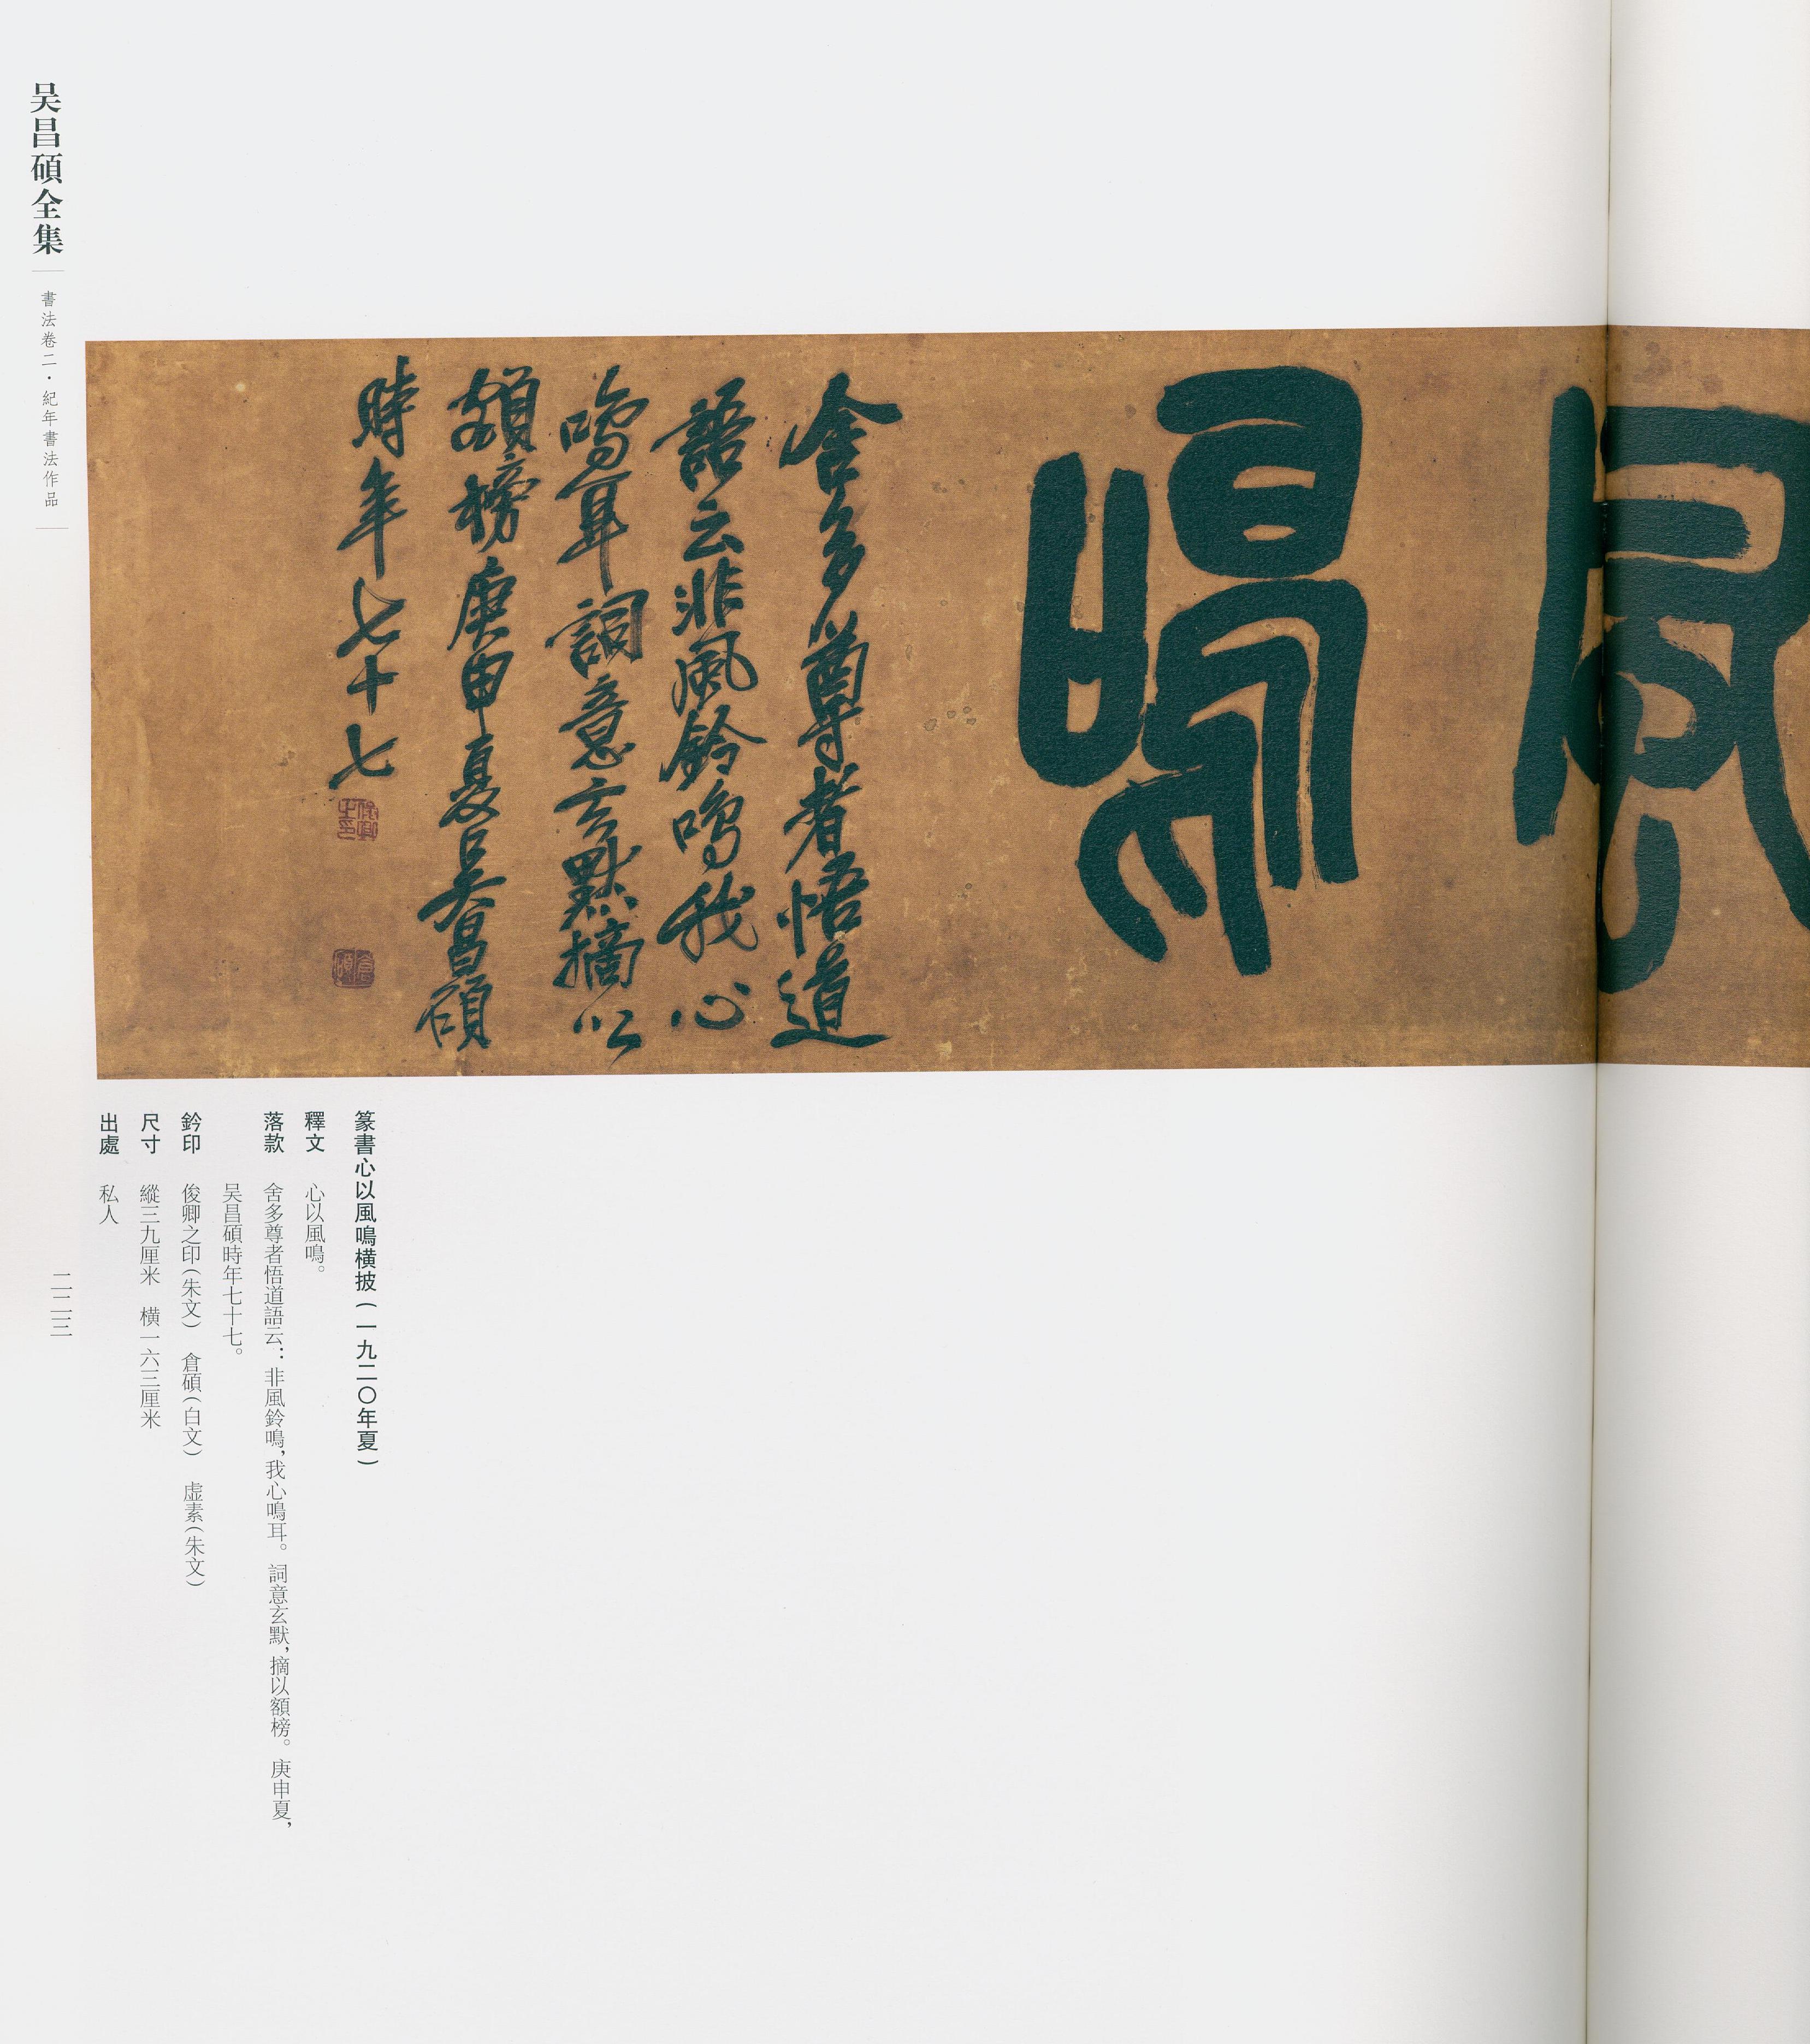 風鳴
舍多尊者悟道
語云非風鈴鳴我心
鳴耳詞意玄默摘以
額榜庚申夏吳昌碩
時年七十七
俊卿之印
倉碩
篆書心以風鳴橫披(一九二〇年夏)
釋文 心以風鳴。
落款 舍多尊者悟道語云：非風鈴鳴，我心鳴耳。詞意玄默，摘以額榜。庚申夏，
吴昌碩時年七十七。
鈐印 俊卿之印(朱文) 倉碩(白文) 虛素(朱文)
尺寸 縱三九厘米 橫一六三厘米
出處 私人
吴昌碩全集
書法卷二·紀年書法作品
二二三